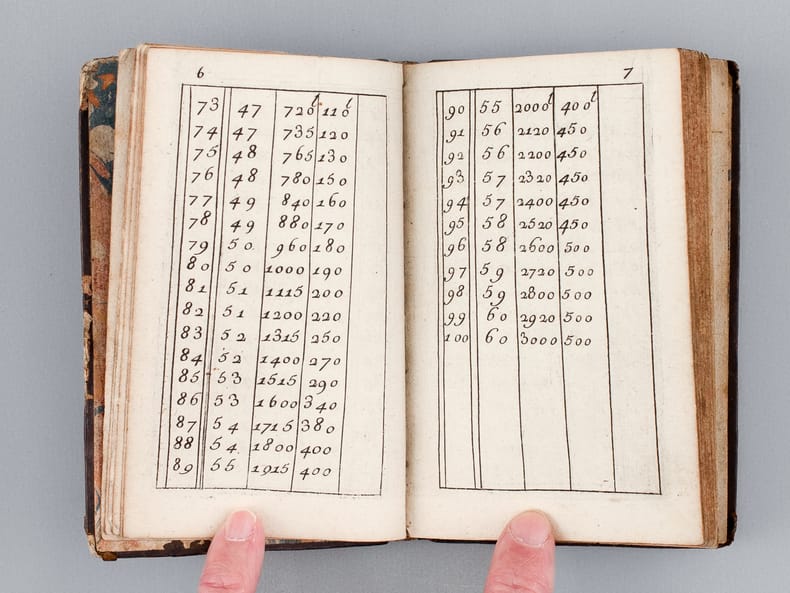 6
73 47 720 l 110 l
74 47 735 120
75 48 765 130
76 48 780 150
77 49 840 160
78 49 880 170
79 50. 960 180
80 50 1000 190
81 51 1115 200
82 51 1200 220
83 52 1315 250
84 52 1400 270
85 53 1515 290
86 53 1600 340
87 54 1715 380
88 54. 1800 400
89 55 1915 400
7
90 55 2000 l 400 l
91 56 2120 450
92 56 2200 450
93 57 2320 450
94 57 2400 450
95 58 2520 450
96 58 2600 500
97 59 2720 500
98 59 2800 500
99 60 2920 500
100 60 3000 500